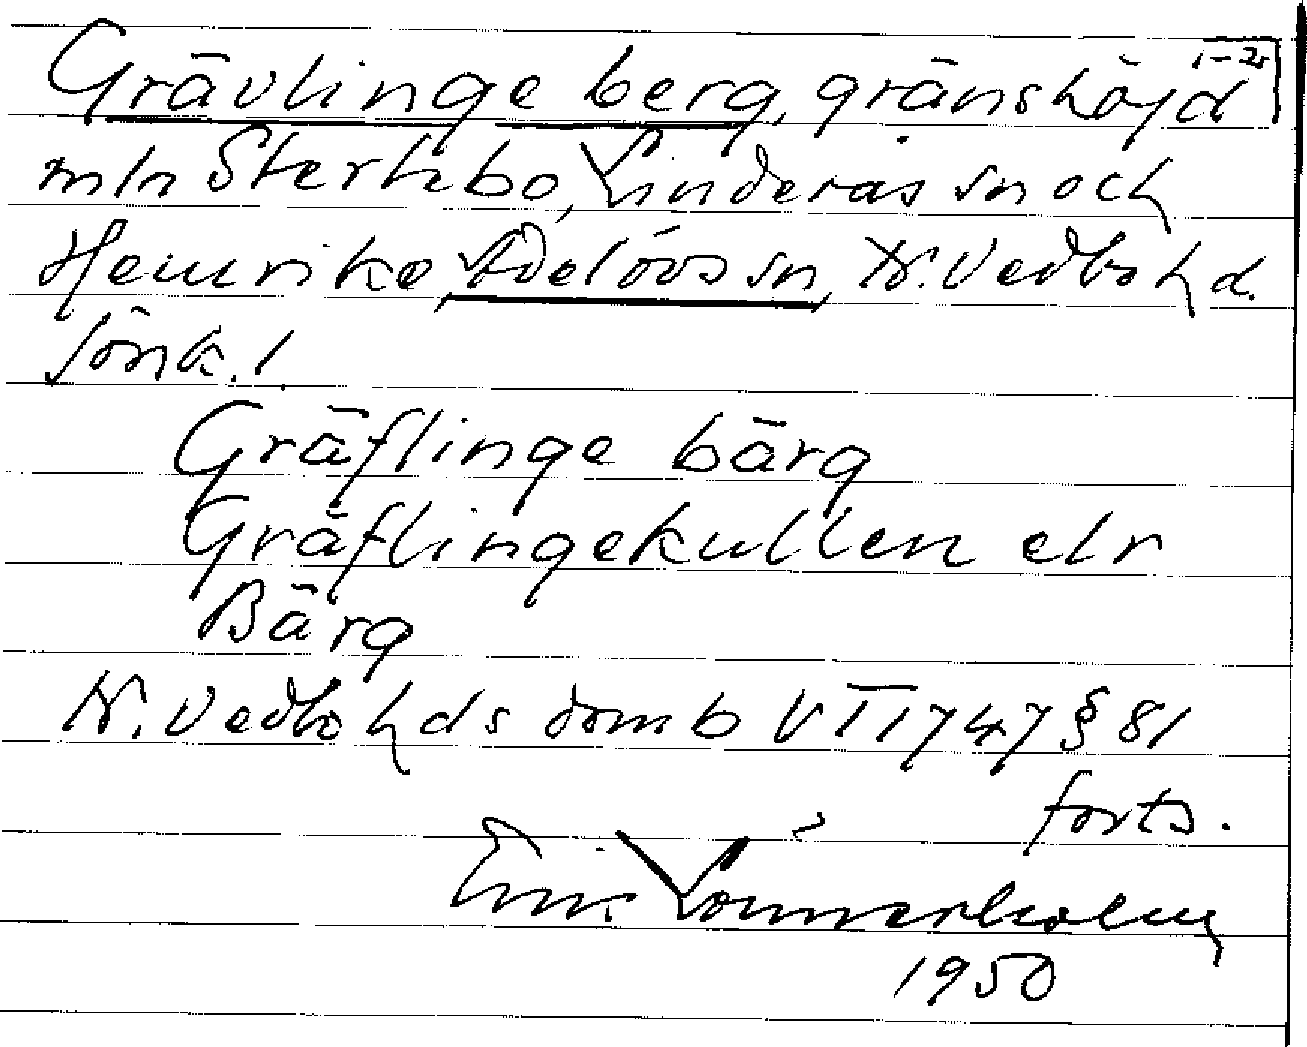 1-2
Grävlinge berg, gränshöjd
mln Stertebo, Linderås sn och
Henrike, Adelövs sn, N. Vedbo hd.
Jönk. l.
Gräflinge bärg
Gräflingekullen elr
Bärg
N. Vedbo hds domb VT 1747 § 81
forts.
Einar Lönnerholm
1950